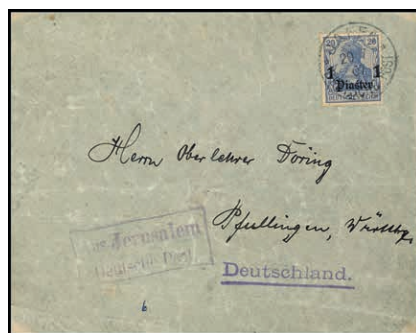 20 20
1 1
Piaster
Herrn Oberlehrer Döring
Pfullingen, Württbg.
Aus Jerusalem
Deutsche Post
Deutschland.
6